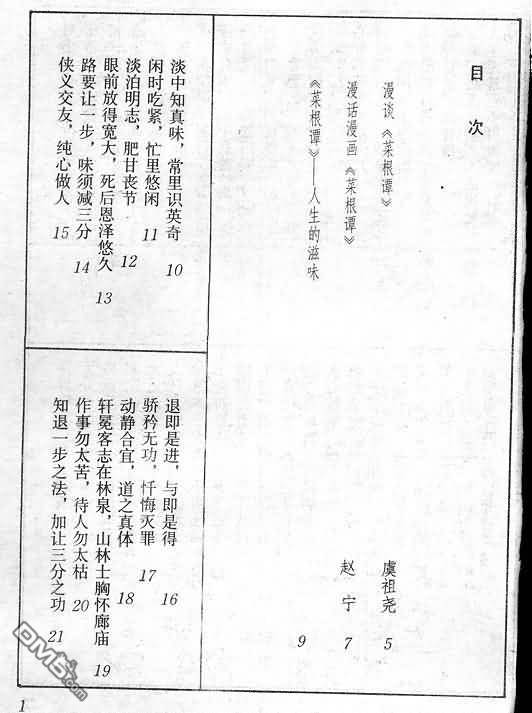 目次
漫谈《菜根谭》 虞祖尧 5
漫话漫画《菜根谭》 赵宁 7
《菜根谭》——人生的滋味 9
淡中知真味，常里识英奇 10
闲时吃紧，忙里悠闲 11
淡泊明志，肥甘丧节 12
眼前放得宽大，死后恩泽悠久 13
路要让一步，味须减三分 14
侠义交友，纯心做人 15
退即是进，与即是得 16
骄矜无功，忏悔灭罪 17
动静合宜，道之真体 18
轩冕客志在林泉，山林士胸怀廊庙 19
作事勿太苦，待人勿太枯 20
知退一步之法，加让三分之功 21
1